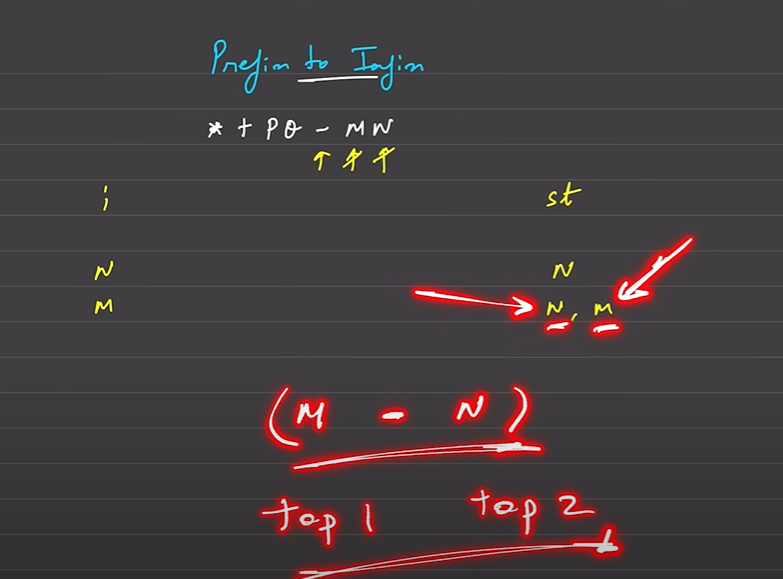 Prefix to Infix
* + P Q - M N
i st
N N
M N, M
(M - N)
top 1 top 2